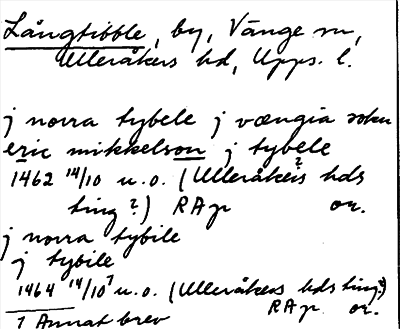 Långtibble, by, Vänge sn,
Ulleråkers hd, Upps. l.
j norra tybele j vængia sokn
eric mikkelson j tybele
1462 14/10 u.o. (Ulleråkers? hds
ting?) RAp or.
j norra tybile
j tybile
1464 14/10 1 u.o. (Ulleråkers hds ting?)
1 Annat brev RAp or.